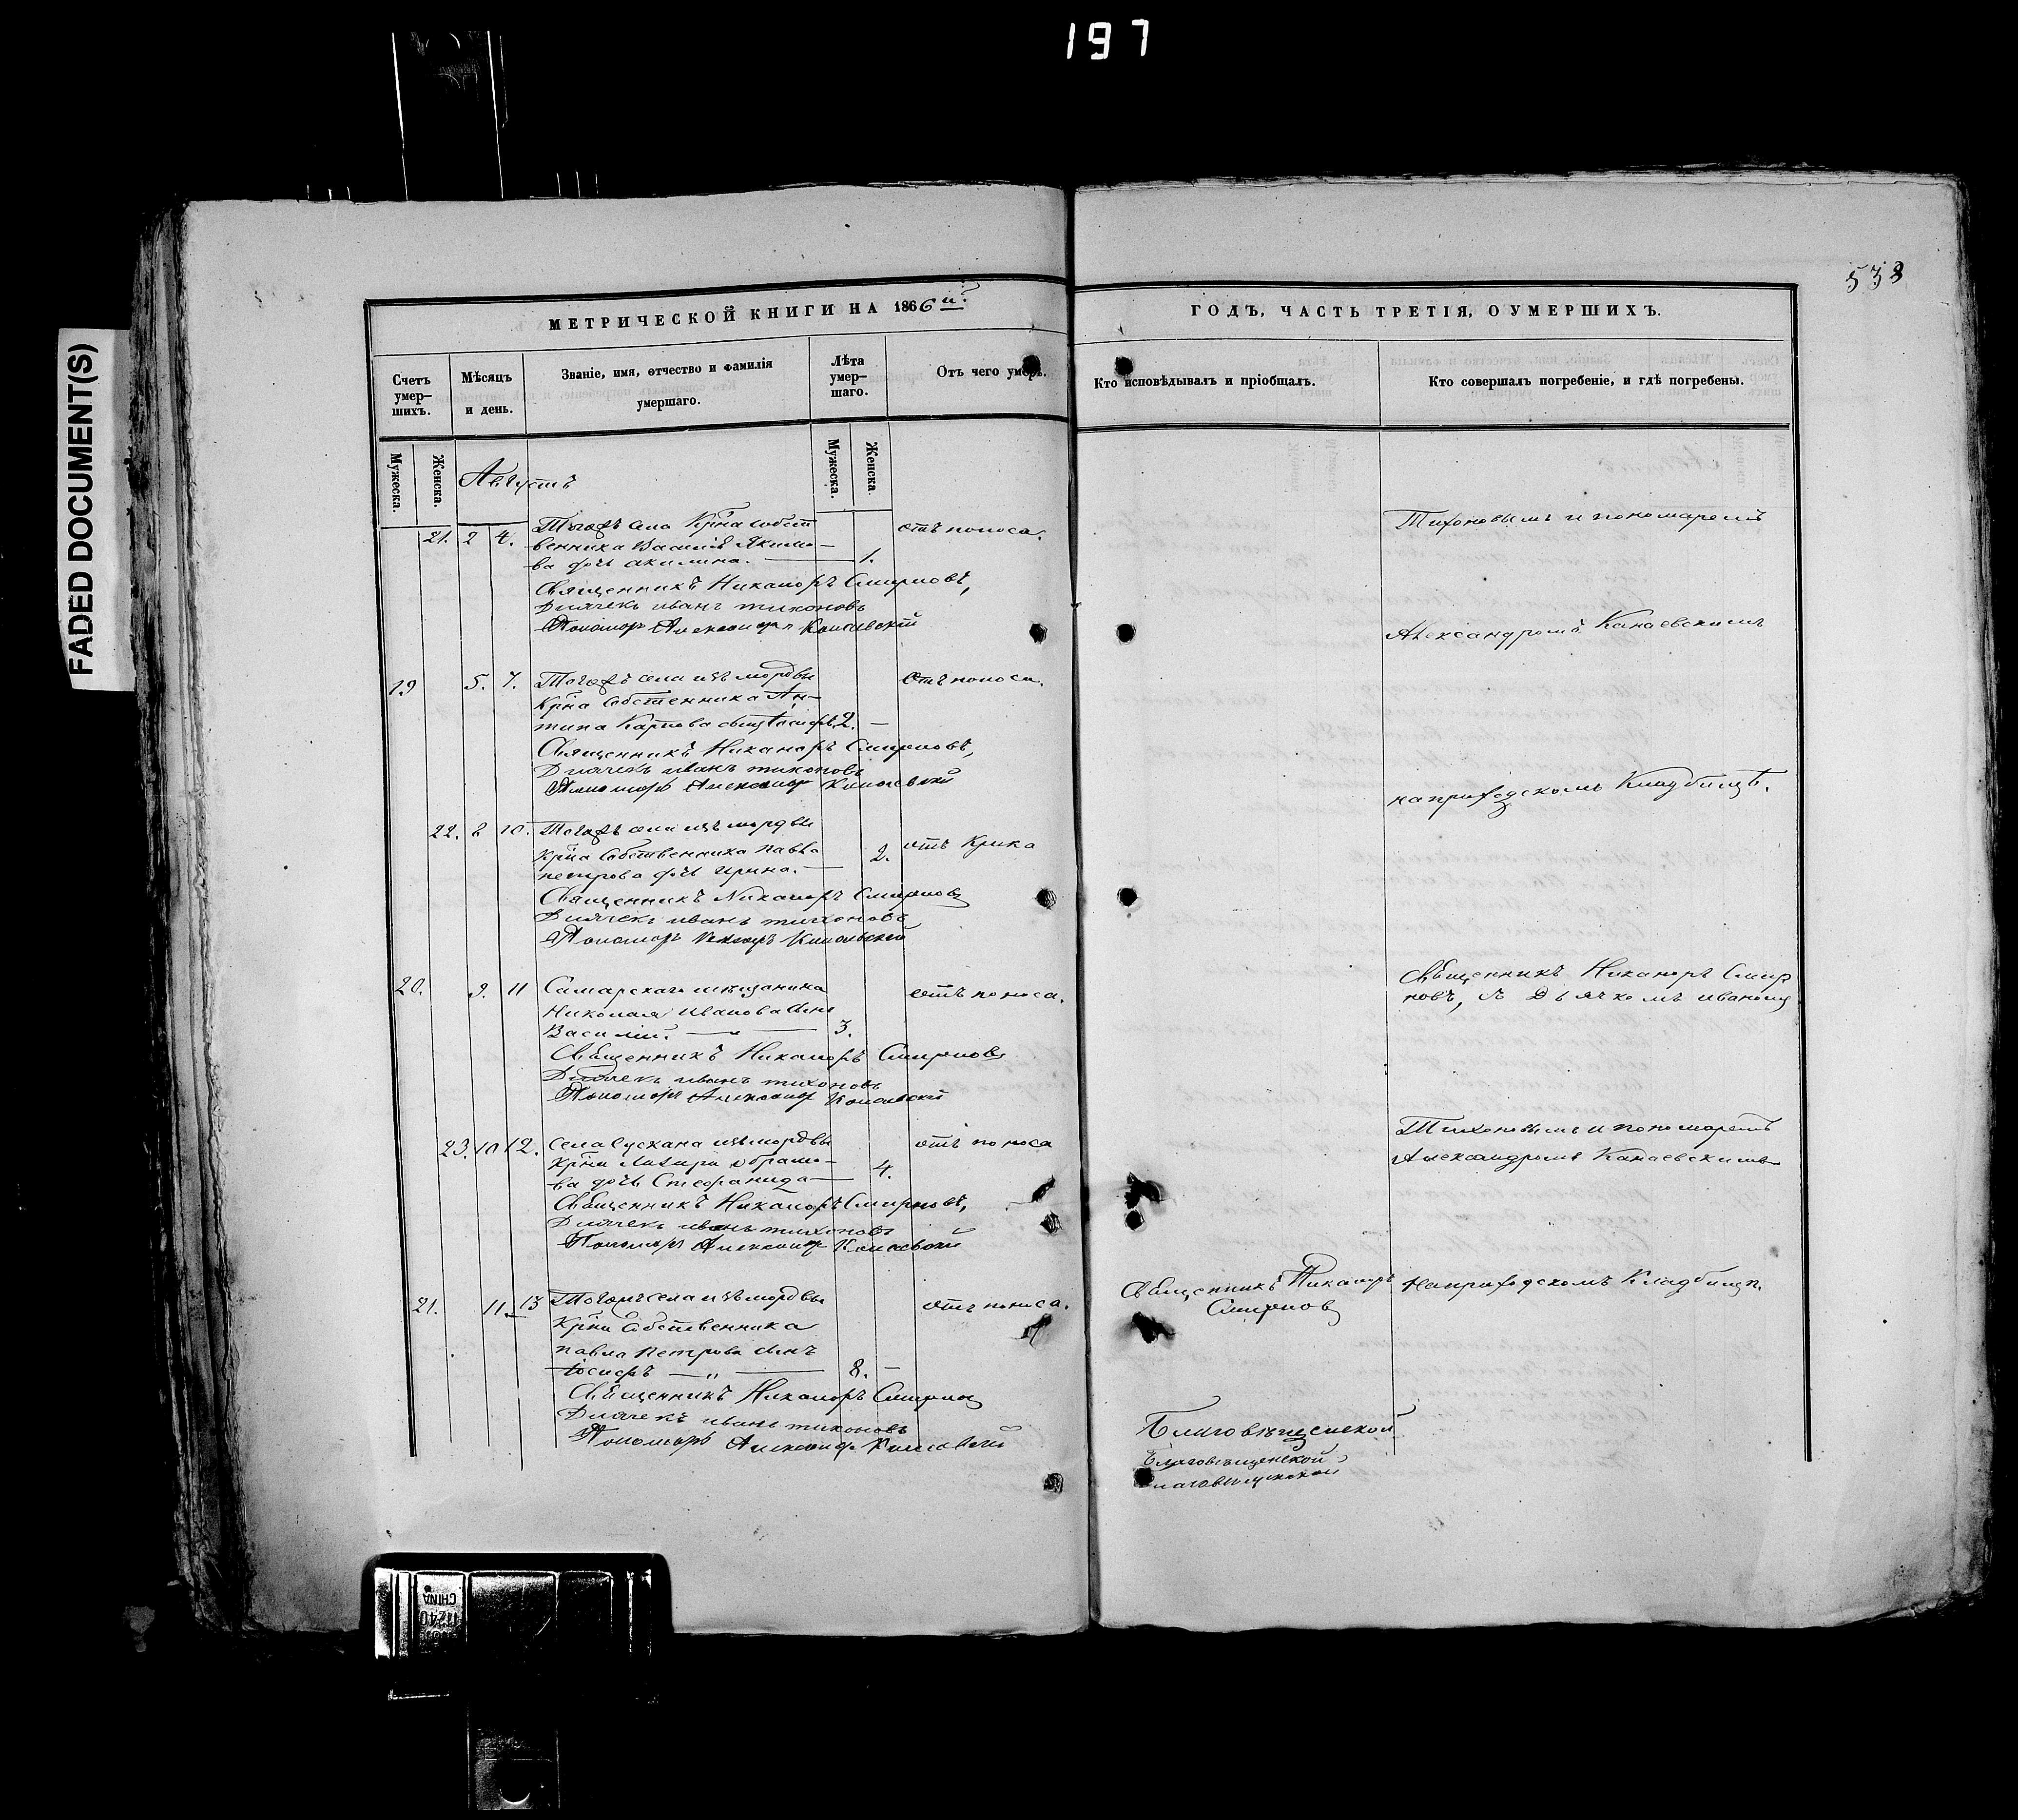 197
FADED DOCUMENT(S)
538
МЕТРИЧЕСКОЙ КНИГИ НА 1866й
ГОДЪ, ЧАСТЬ ТРЕТІЯ, О УМЕРШИХЪ.
Счетъ умер–шихъ.
Мѣсяцъ и день.
Званіе, имя, отчество и фамилія умершаго.
Лѣта умер–шаго.
Отъ чего умеръ.
Кто исповѣдывалъ и пріобщалъ.
Кто совершалъ погребеніе, и гдѣ погребены.
Мужеска.
Женска.
Мужеска.
Женска.
Августъ
21. 2 4. Тогожъ села Крна собст
венника Василія Якимо–
ва дочь акилина. 1.
отъ поноса.
Священникъ Никаноръ Смирновъ,
Дьячекъ иванъ тихоновъ
Пономарь Александръ Канаевскій
Тихоновымъ и пономаремъ
Александромъ Канаевскимъ
19 5. 7. Тогожъ села изъ мордвы
Крна Собственника Ан–
типа Карпова сынъ Іосифъ 2. –
Отъ поноса.
Священникъ Никаноръ Смирновъ,
Дьячекъ иванъ тихоновъ
Пономарь Александръ Канаевскій
на приходскомъ Кладбищѣ.
22. 8 10. Тогожъ села изъ мордвы
Крна Собственника павла
петрова дочь ирина. 2.
отъ Крика
Священникъ Никаноръ Смирновъ
Дьячекъ иванъ тихоновъ
Пономарь Александръ Канаевскій
20. 9. 11 Самарскаго мещанина
Николая Иванова сынъ
Василій. — „ — 3.
отъ поноса.
Священникъ Никаноръ Смирновъ
Дьячекъ иванъ тихоновъ
Пономарь Александръ Канаевскій
Священникъ Никаноръ Смир
новъ, съ Дьячкомъ иваномъ
23. 10 12. села Сускана изъ мордвы
Крна абрамо–
ва дочь Стефанида 4.
отъ поноса
Священникъ Никаноръ Смирновъ,
Дьячекъ иванъ тихоновъ
Пономарь Александръ Канаевскій
Тихоновымъ и пономаремъ
Александромъ Канаевскимъ
21. 11 13 Тогожъ села изъ мордвы
Крна Собственника
павла Петрова сынъ
Іосифъ — „ — 8. –
отъ поноса.
Священникъ Никаноръ Смирновъ
Дьячекъ иванъ тихоновъ
Пономарь Александръ Канаевскій
Священникъ Никаноръ
Смирновъ
На приходскомъ Кладбищѣ.
Благовѣщенской
Благовѣщенской
Благовѣщенской
CHINA